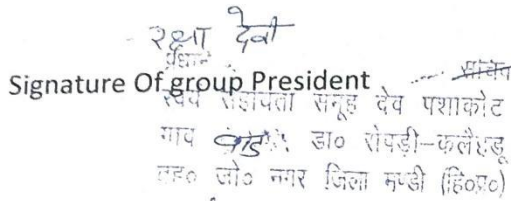 रक्षा देवी
प्रधान सचिव
Signature Of group President
स्वयं सहायता समूह देव पशाकोट
गाव डा० रोपड़ी-कलैहडू
तह० जो० नगर जिला मण्डी (हि०प्र०)